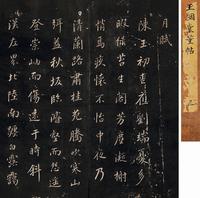 月賦
陳王初喪應劉端憂多
暇綠苔生閣芳塵凝榭
悄焉疚懷不怡中夜乃
清蘭路肅桂苑騰吹寒山
弭蓋秋坂臨濬壑而怨遙
登崇岫而傷遠于時斜
漢左界北陸南躔白露